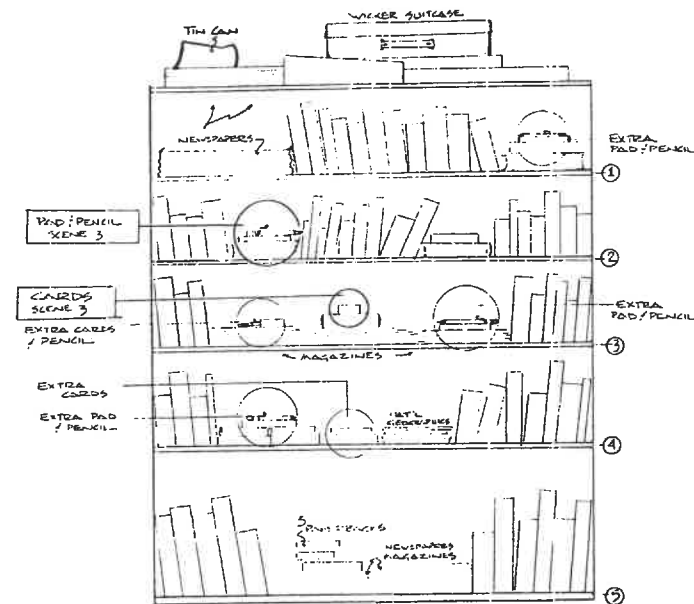 WICKER SUITCASE
TIN CAN
NEWSPAPERS
EXTRA
PAD/PENCIL
1
PAD/PENCIL
SCENE 3
2
CARDS
SCENE 3
EXTRA CARDS
/ PENCIL
EXTRA
PAD/PENCIL
3
MAGAZINES
EXTRA
CARDS
EXTRA PAD
/ PENCIL
NAT'L
4
NEWSPAPERS
MAGAZINES
5